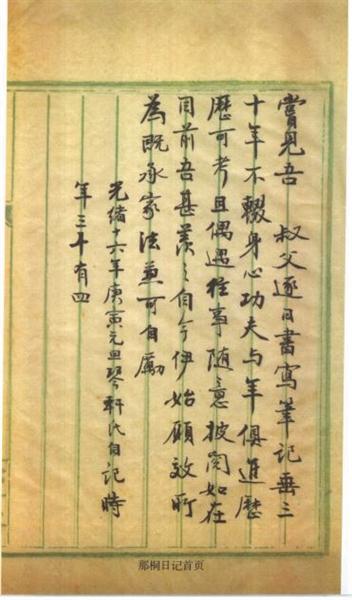 嘗見吾 叔父逐日書寫筆記垂三
十年不輟身心功夫与年俱進歷
歷可考且偶遇往事隨意披閱如在
目前吾甚羨之自今伊始願效所
為既承家法兼可自勵
光緒十六年庚寅元旦琴軒氏自記時
年三十有四
那桐日记首页